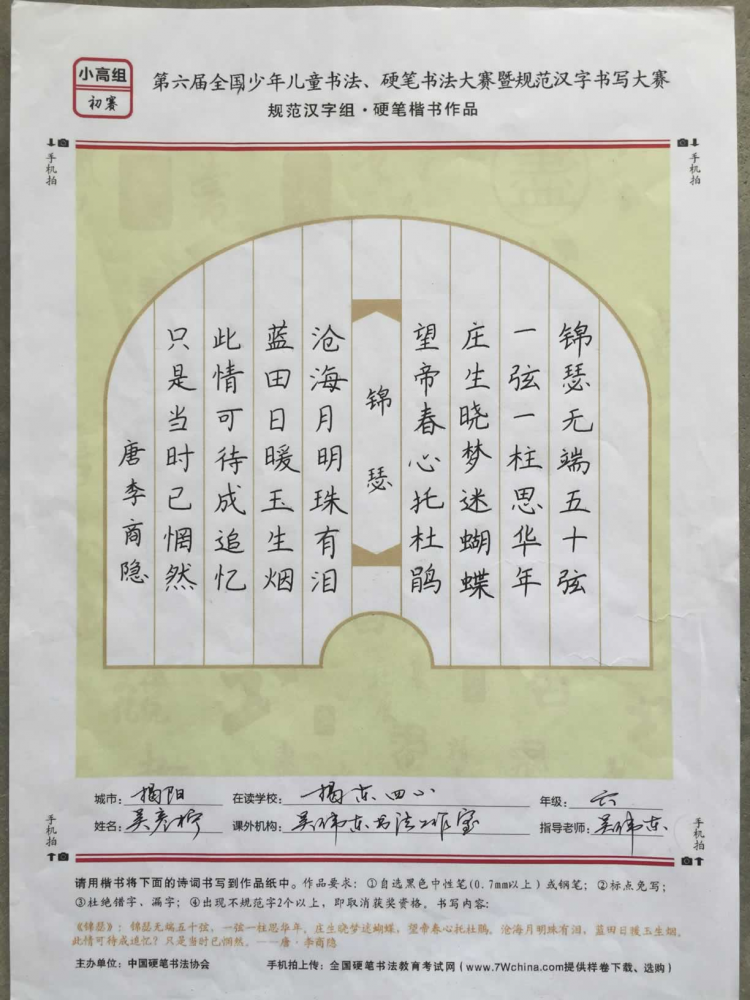 小高组
初赛
第六届全国少年儿童书法、硬笔书法大赛暨规范汉字书写大赛
规范汉字组·硬笔楷书作品
手机拍
手机拍
锦瑟无端五十弦
一弦一柱思华年
庄生晓梦迷蝴蝶
望帝春心托杜鹃
锦瑟
沧海月明珠有泪
蓝田日暖玉生烟
此情可待成追忆
只是当时已惘然
唐李商隐
城市：揭阳 在读学校：揭东四小 年级：六
姓名：吴彦柠 课外机构：吴伟东书法工作室 指导老师：吴伟东
手机拍
手机拍
请用楷书将下面的诗词书写到作品纸中。作品要求：①自选黑色中性笔(0.7mm以上)或钢笔；②标点免写；
③杜绝错字、漏字；④出现不规范字2个以上，即取消获奖资格。书写内容：
《锦瑟》：锦瑟无端五十弦，一弦一柱思华年。庄生晓梦迷蝴蝶，望帝春心托杜鹃。沧海月明珠有泪，蓝田日暖玉生烟。
此情可待成追忆？只是当时已惘然。——唐·李商隐
主办单位：中国硬笔书法协会 手机拍上传：全国硬笔书法教育考试网(www.7Wchina.com提供样卷下载、选购)